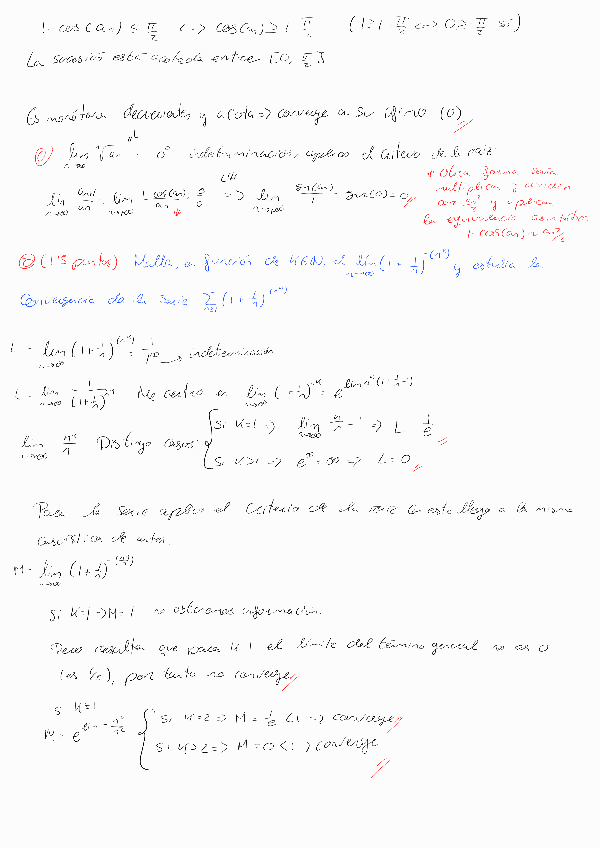 1-cos(an) ≤ π/2 <-> cos(an) ≥ 1-π/2 (1≥1-π/2 <-> 0≥-π/2 si)
La sucesión está acotada entre [0, π/2]
Es monótona decreciente y acotada => converge a su ínfimo (0)
lim n->∞ ⁿ√an = 0⁰ indeterminación, aplico el criterio de la raíz
lim n->∞ an+1/an = lim n->∞ 1-cos(an)/an = 0/0 L'H => lim n->∞ sen(an)/1 = sen(0) = 0
* Otra forma sería
multiplicar y dividir
y aplicar
la equivalencia
1-cos(an) ~ an²/2
(1'5 puntos) Halla, en función de K∈N, el lim n->∞ (1+1/n)^-(n^k) y estudia la
convergencia de la serie Σ n≥1 (1+1/n)^-(n^k)
L = lim n->∞ (1+1/n)^-(n^k) = 1/1^∞ -> indeterminación
L = lim n->∞ 1/(1+1/n)^n^k Me centro en lim n->∞ (1+1/n)^n^k = e^lim n^k(1+1/n-1)
lim n->∞ n^k/n Distingo casos
Si K=1 => lim n->∞ n/n = 1 => L = 1/e
Si K>1 => e^∞ = ∞ => L=0
Para la serie aplico el criterio de la raíz
casuística de antes.
M = lim n->∞ (1+1/n)^-(n^k/n)
Si K=1 => M=1 no obtenemos información.
Pero resulta que para K=1 el límite del término general no es 0
(es 1/e), por tanto no converge
Si K≠1
Si K=2 => M = 1/e <1 => converge
Si K>2 => M=0<1 => converge